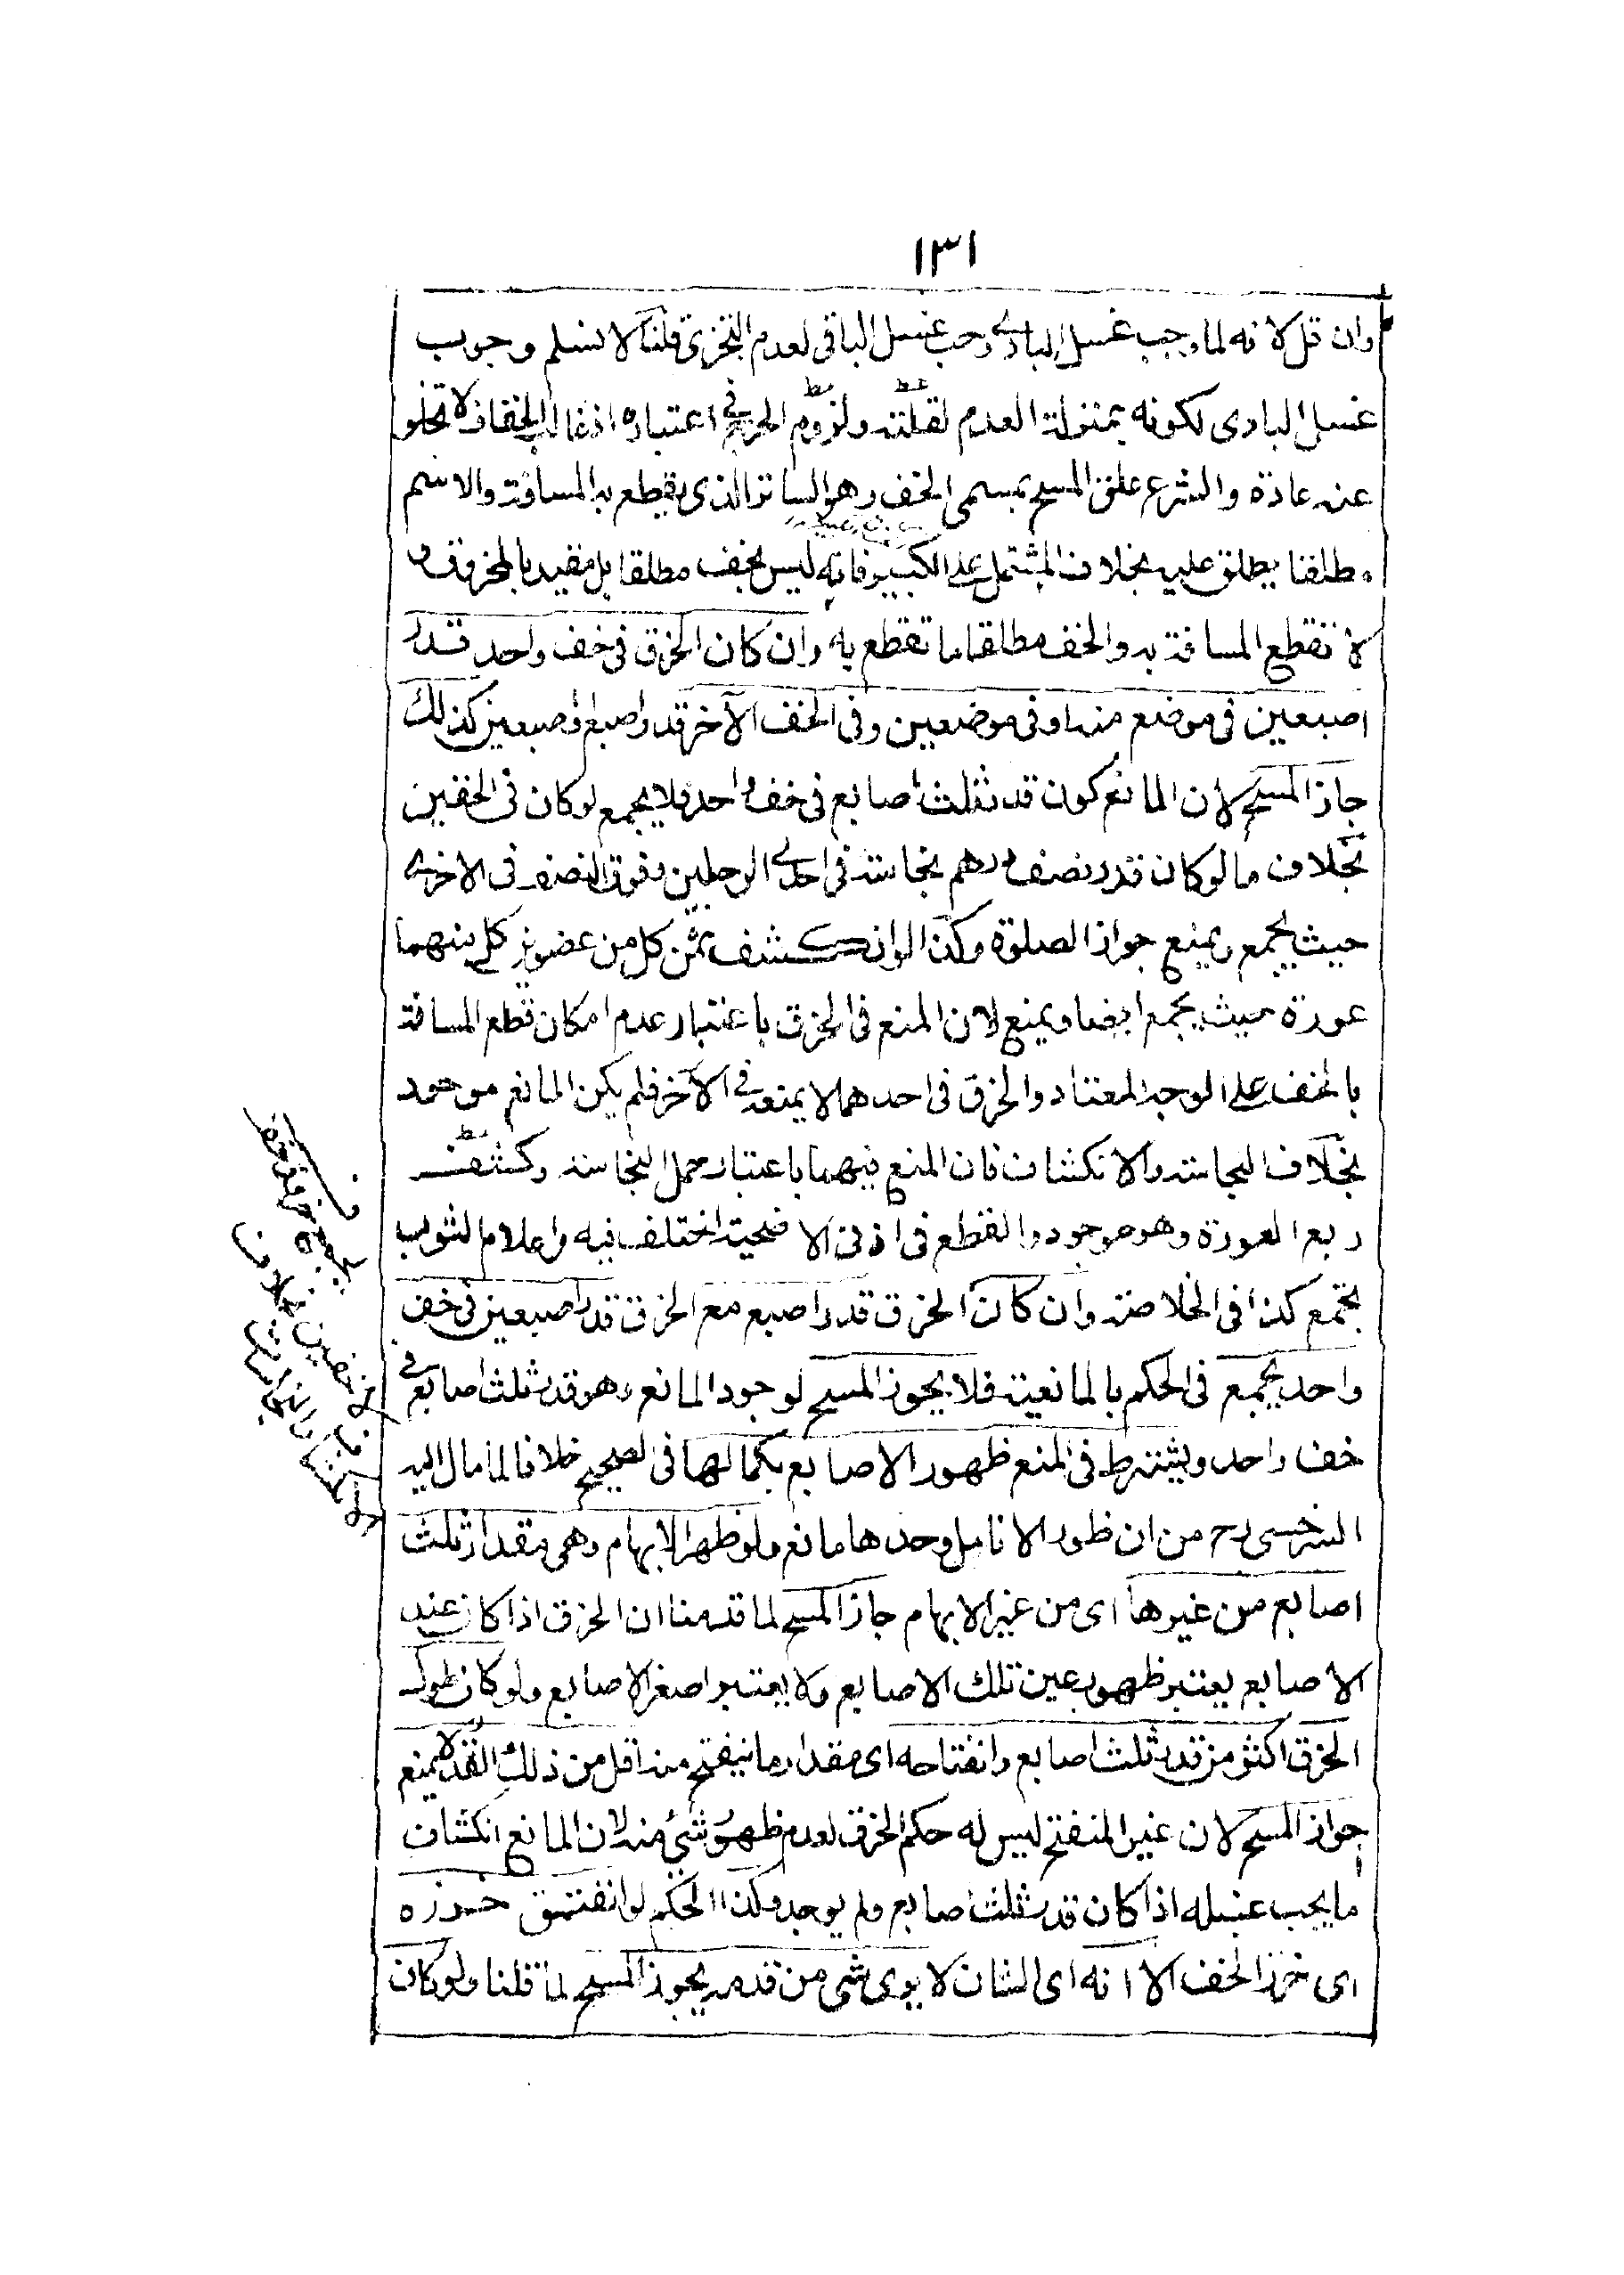 ١٣١
وان قل لانه لما وجب غسل البادى وجب غسل الباقى لعدم التجزى قلنا لا نسلم وجوب
غسل البادى لكونه بمنزلة العدم لقلته ولزوم الحرج فى اعتباره اذ غالب الخفاف لا تخلو
عنه عادة والشرع علق المسح بمسمى الخف وهو الساتر الذى يقطع به المسافة والاسم
مطلقا يطلق عليه بخلاف المشتمل على الكبير فانه ليس بخف مطلقا بل مقيد بالمخروق و
لا تقطع المسافة به والخف مطلقا ما تقطع به وان كان الخرق فى خف واحد قدر
اصبعين فى موضع منه او فى موضعين وفى الخف الآخر قدر اصبع او اصبعين كذلك
جاز المسح لان المانع كون قدر ثلث اصابع فى خف واحد فلا يجمع لو كان فى الخفين
بخلاف ما لو كان قدر نصف درهم نجاسة فى احدى الرجلين وفوق النصف فى الاخرى
حيث يجمع ويمنع جواز الصلوة وكذا لو انكشف ثمن كل من عضوين كل منهما
عورة حيث يجمع ايضا ويمنع لان المنع فى الخرق باعتبار عدم امكان قطع المسافة
بالخف على الوجه المعتاد والخرق فى احدهما لا يمنعه فى الآخر فلم يكن المانع موجود
بخلاف النجاسة والانكشاف فان المنع فيهما باعتبار حمل النجاسة وكشف
ربع العورة وهو موجود والقطع فى اذنى الاضحية اختلف فيه واعلام الثوب
يجتمع كذا فى الخلاصة وان كان الخرق قدر اصبع مع الخرق قدر اصبعين فى خف
واحد يجمع فى الحكم بالمانعية فلا يجوز المسح لوجود المانع وهو قدر ثلث اصابع فى
خف واحد ويشترط فى المنع ظهور الاصابع بكمالها فى الصحيح خلافا لما مال اليه
السرخسى رح من ان ظهور الانامل وحدها مانع ولو ظهر الابهام وهى مقدار ثلث
اصابع من غيرها اى من غير الابهام جاز المسح لما قدمنا ان الخرق اذا كان عند
الاصابع يعتبر ظهور عين تلك الاصابع ولا يعتبر اصغر الاصابع ولو كان طول
الخرق اكثر من قدر ثلث اصابع وانفتاحه اى مقدار ما ينفتح منه اقل من ذلك القدر لا يمنع
جواز المسح لان غير المنفتح ليس له حكم الخرق لعدم ظهور شئ منه لان المانع انكشاف
ما يجب غسله اذا كان قدر ثلث اصابع ولم يوجد وكذا الحكم لو انفتق خرزه
اى خرز الخف الا انه اى الشان لا يرى شى من قدمه يجوز المسح لما قلنا ولو كان